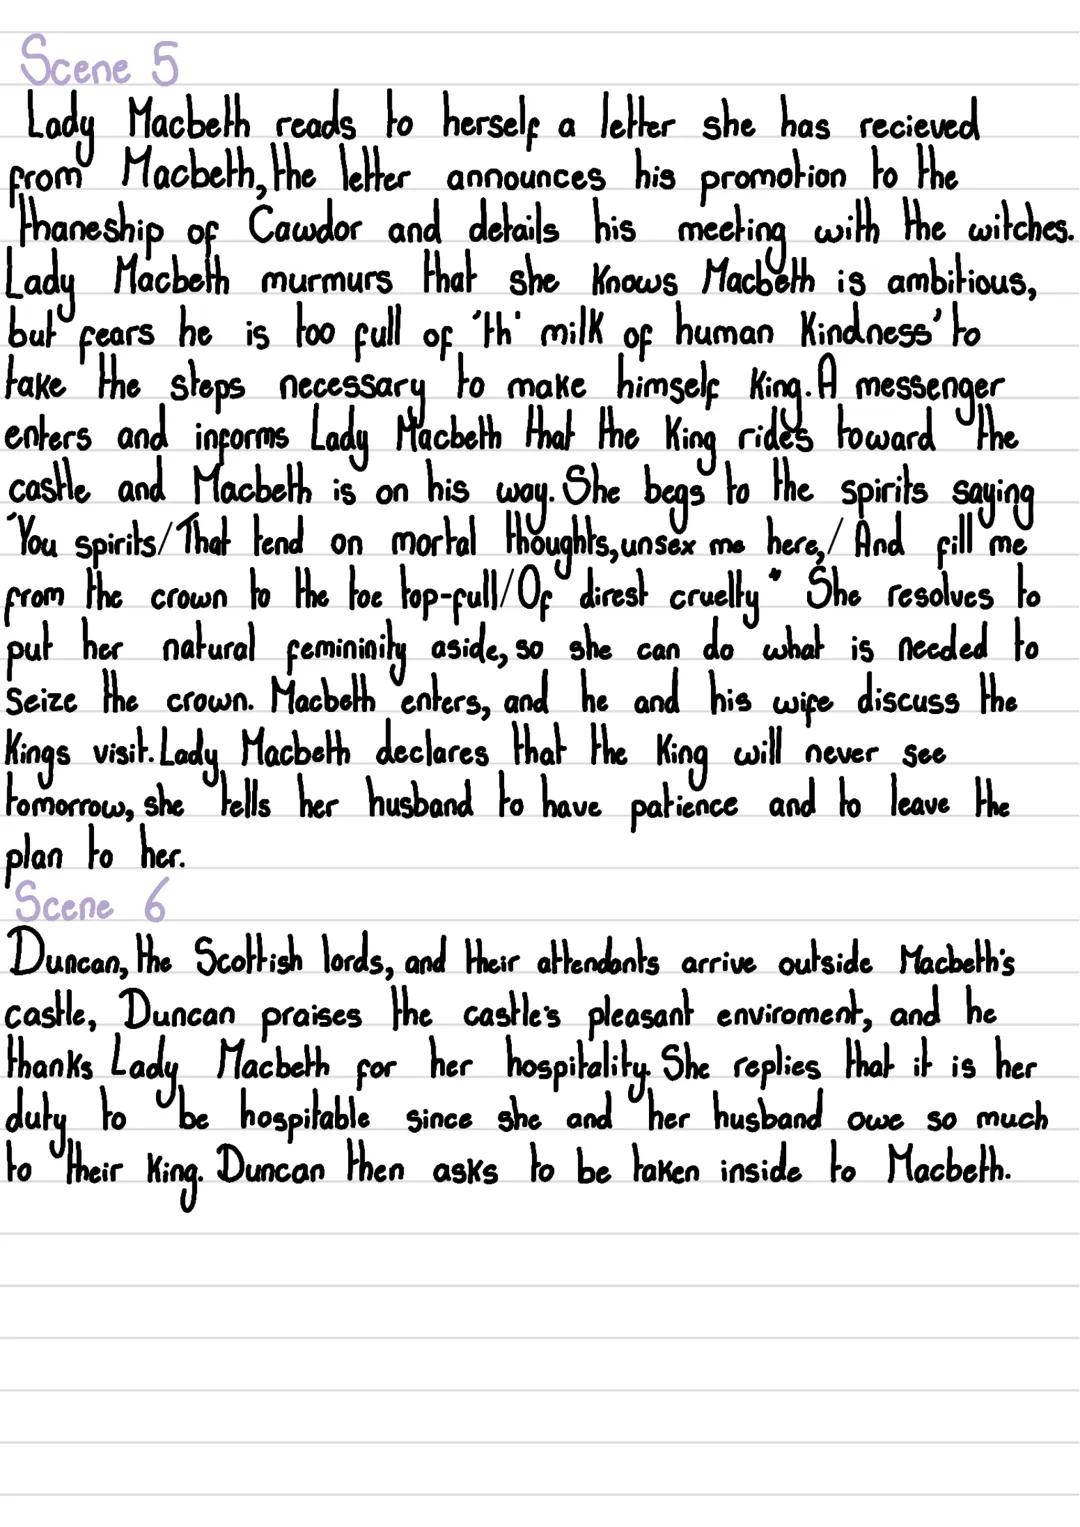 Scene 5
Lady Macbeth reads to herself a letter she has recieved
from Macbeth, the letter announces his promotion to the
thaneship of Cawdor and details his meeting with the witches.
Lady Macbeth murmurs that she knows Macbeth is ambitious,
but fears he is too full of 'th' milk of human kindness' to
take the steps necessary to make himself king. A messenger
enters and informs Lady Macbeth that the King rides toward the
castle and Macbeth is on his way. She begs to the spirits saying
"You spirits/ That tend on mortal thoughts, unsex me here,/ And fill me
from the crown to the toe top-full/ Of direst cruelty" She resolves to
put her natural femininity aside, so she can do what is needed to
seize the crown. Macbeth enters, and he and his wife discuss the
Kings visit. Lady Macbeth declares that the King will never see
tomorrow, she tells her husband to have patience and to leave the
plan to her.
Scene 6
Duncan, the Scottish lords, and their attendants arrive outside Macbeth's
castle, Duncan praises the castle's pleasant enviroment, and he
thanks Lady Macbeth for her hospitality. She replies that it is her
duty to be hospitable since she and her husband owe so much
to their King. Duncan then asks to be taken inside to Macbeth.